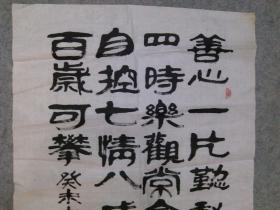 善心一片勤
四時樂觀常
自控七情八
百歲可攀癸未